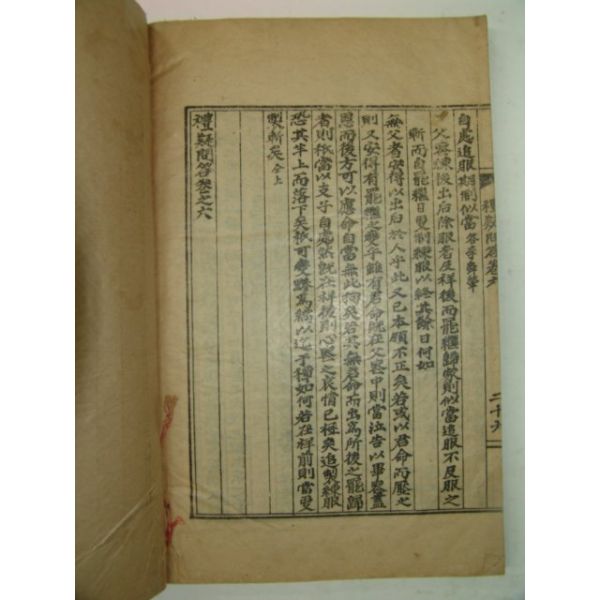 自處追服期制似當 答李舜華
父喪練後出后除服者及祥後而罷繼歸家則似當追服不及服之
斬而自罷繼日變制練服以終其餘日何如
無父者安得以出后於人乎此又已本領不正矣若或以君命而壓之
則又安得有罷繼之變乎雖有君命旣在父喪中則當泣告以畢喪蓋
恩而後方可以應命自當無此拘矣若其無君命而出爲所後之罷歸
者則秪當以支子自處然旣在祥後則心喪之哀情已極矣追製練服
恐其半上而落下矣秪可變 爲縞以迄于禫如何若在祥前則當更
製斬矣 仝上
禮疑問答卷之六
禮疑問答卷六
二十九